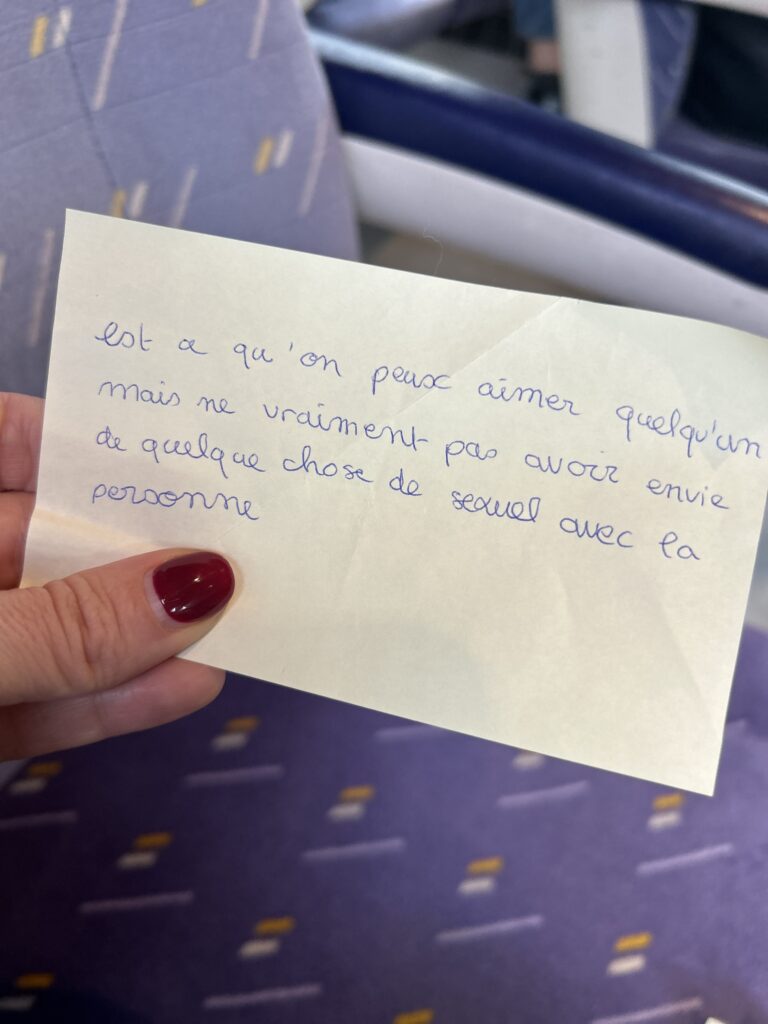 est ce qu'on peux aimer quelqu'un
mais ne vraiment pas avoir envie
de quelque chose de sexuel avec la
personne